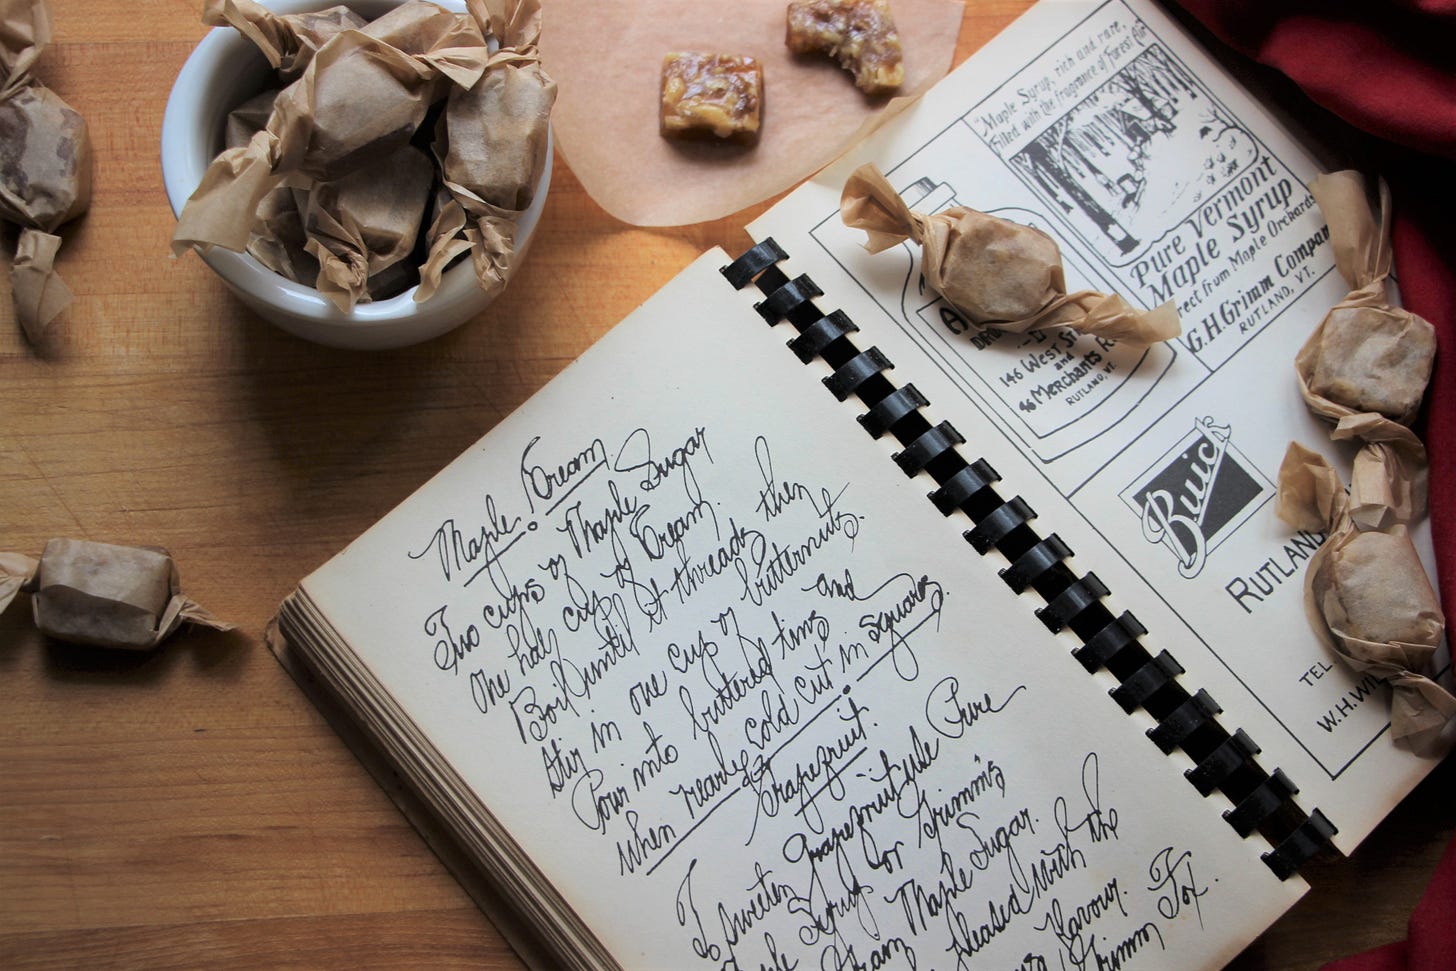 Maple Cream.
Two cups of Maple Sugar
One half cup of Cream.
Boil until it threads then
Stir in one cup of butternuts.
Pour into buttered tins and
When nearly cold cut in squares.
Grapefruit.
To sweeten Grapefruit use Pure
Syrup or Grimm's
Cream Maple Sugar.
pleased with the
flavour.
Grimm Fox.
"Maple Syrup, rich and rare,
Filled with the fragrance of Forest Air"
Pure Vermont
Maple Syrup
from Maple Orchards
G.H. Grimm Company
RUTLAND, VT.
146 West St
and
46 Merchants R
RUTLAND, VT.
Buick
RUTLAND
TEL
W.H.